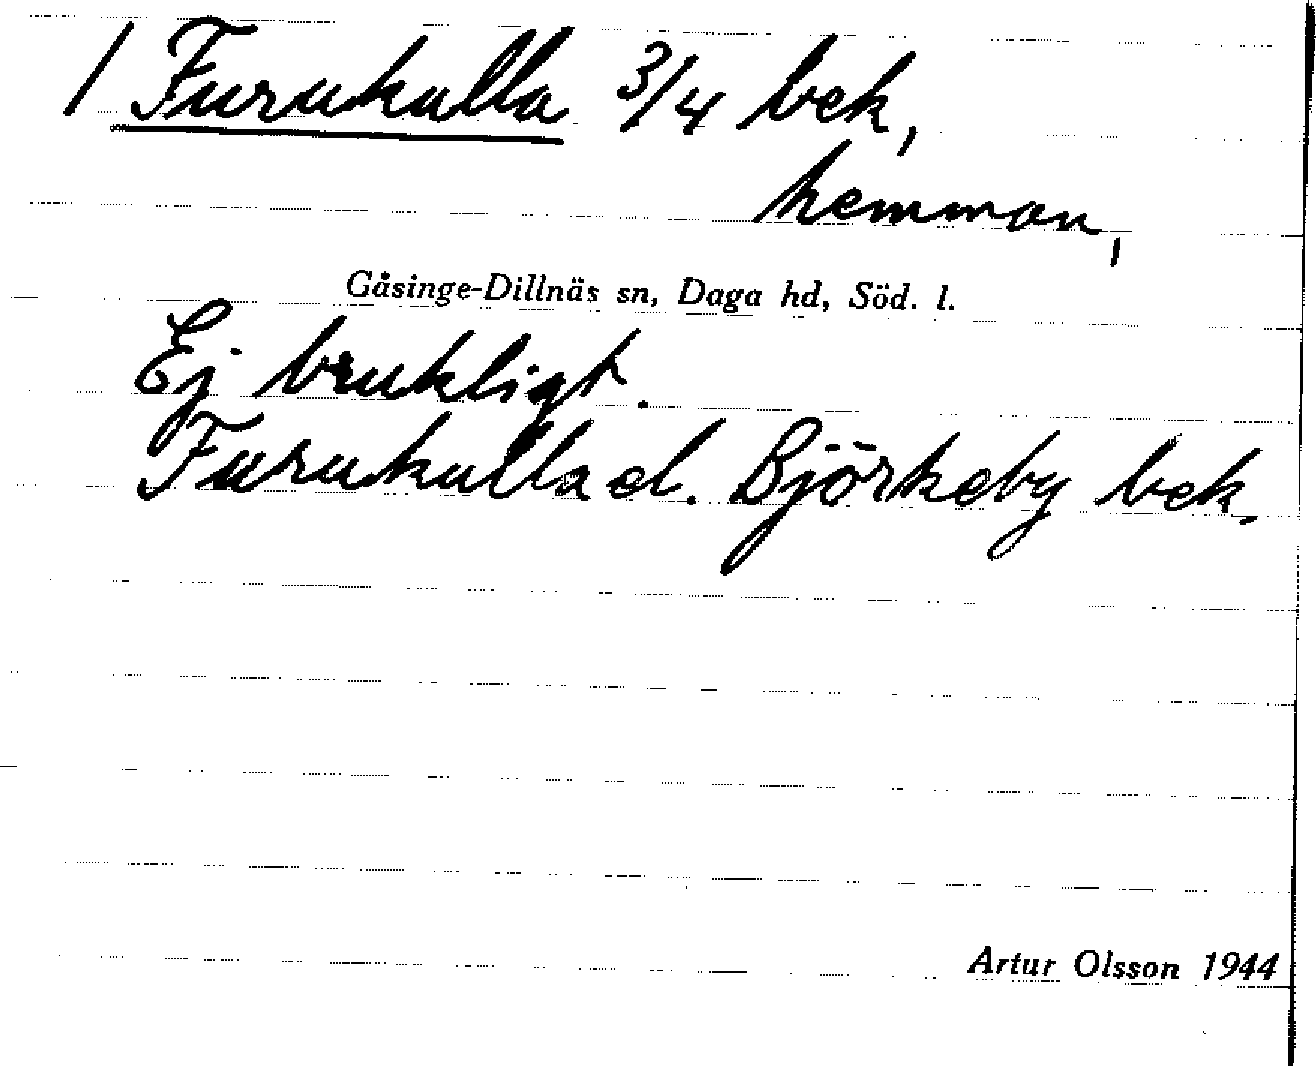 / Furukulla 3/4 bek,
hemman,
Gåsinge-Dillnäs sn, Daga hd, Söd. l.
Ej brukligt.
Furukulla el. Björkeby bek.
Artur Olsson 1944